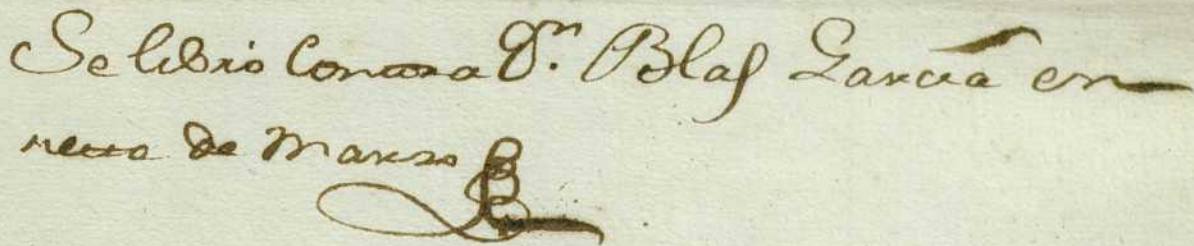 Se libro contra Dn. Blas Garcia en
de Marzo